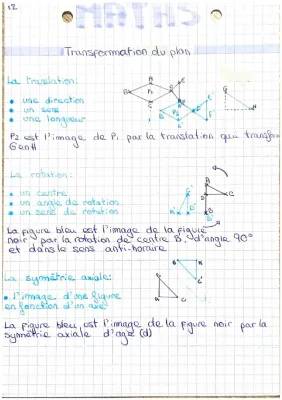 12
Transformation du plan
La translation:
• une direction
• un sens
• une longueur
P2 est l'image de P1 par la translation que transfor
G en H
La rotation:
• un centre
• un angle de rotation
• un sens de rotation
La figure bleu est l'image de la figure
noir par la rotation de centre B, d'angle 90°
et dans le sens anti-horaire
La symétrie axiale:
• l'image d'une figure
en fonction d'un axe
La figure bleu est l'image de la figure noir par la
symétrie axiale d'axe (d)